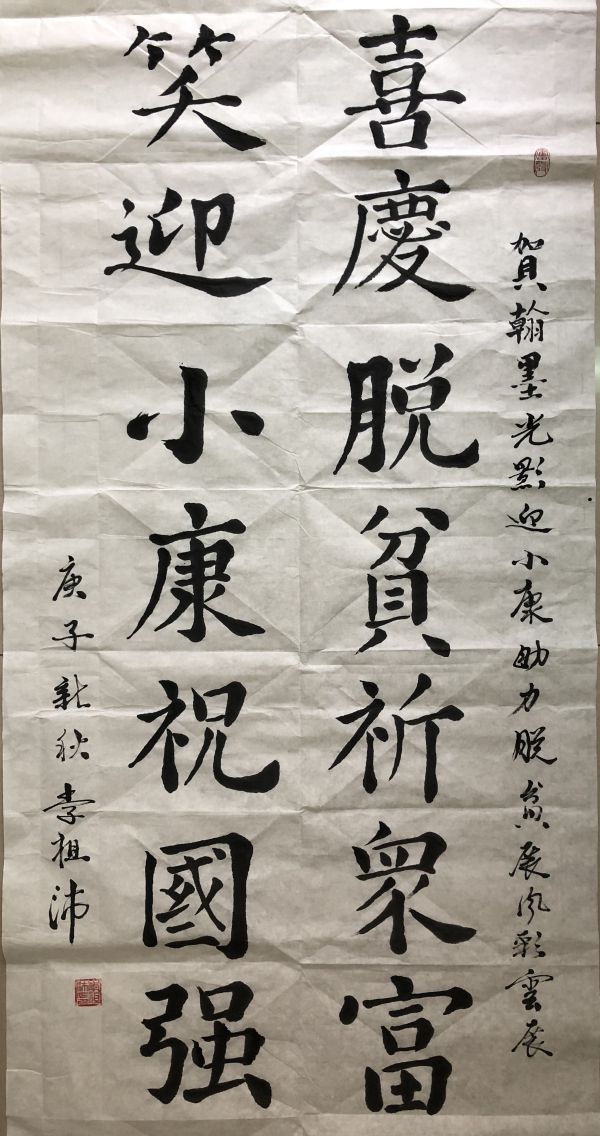 賀翰墨光影迎小康助力脱貧展风彩雲展
喜慶脱貧祈衆富
笑迎小康祝國强
庚子新秋李祖沛